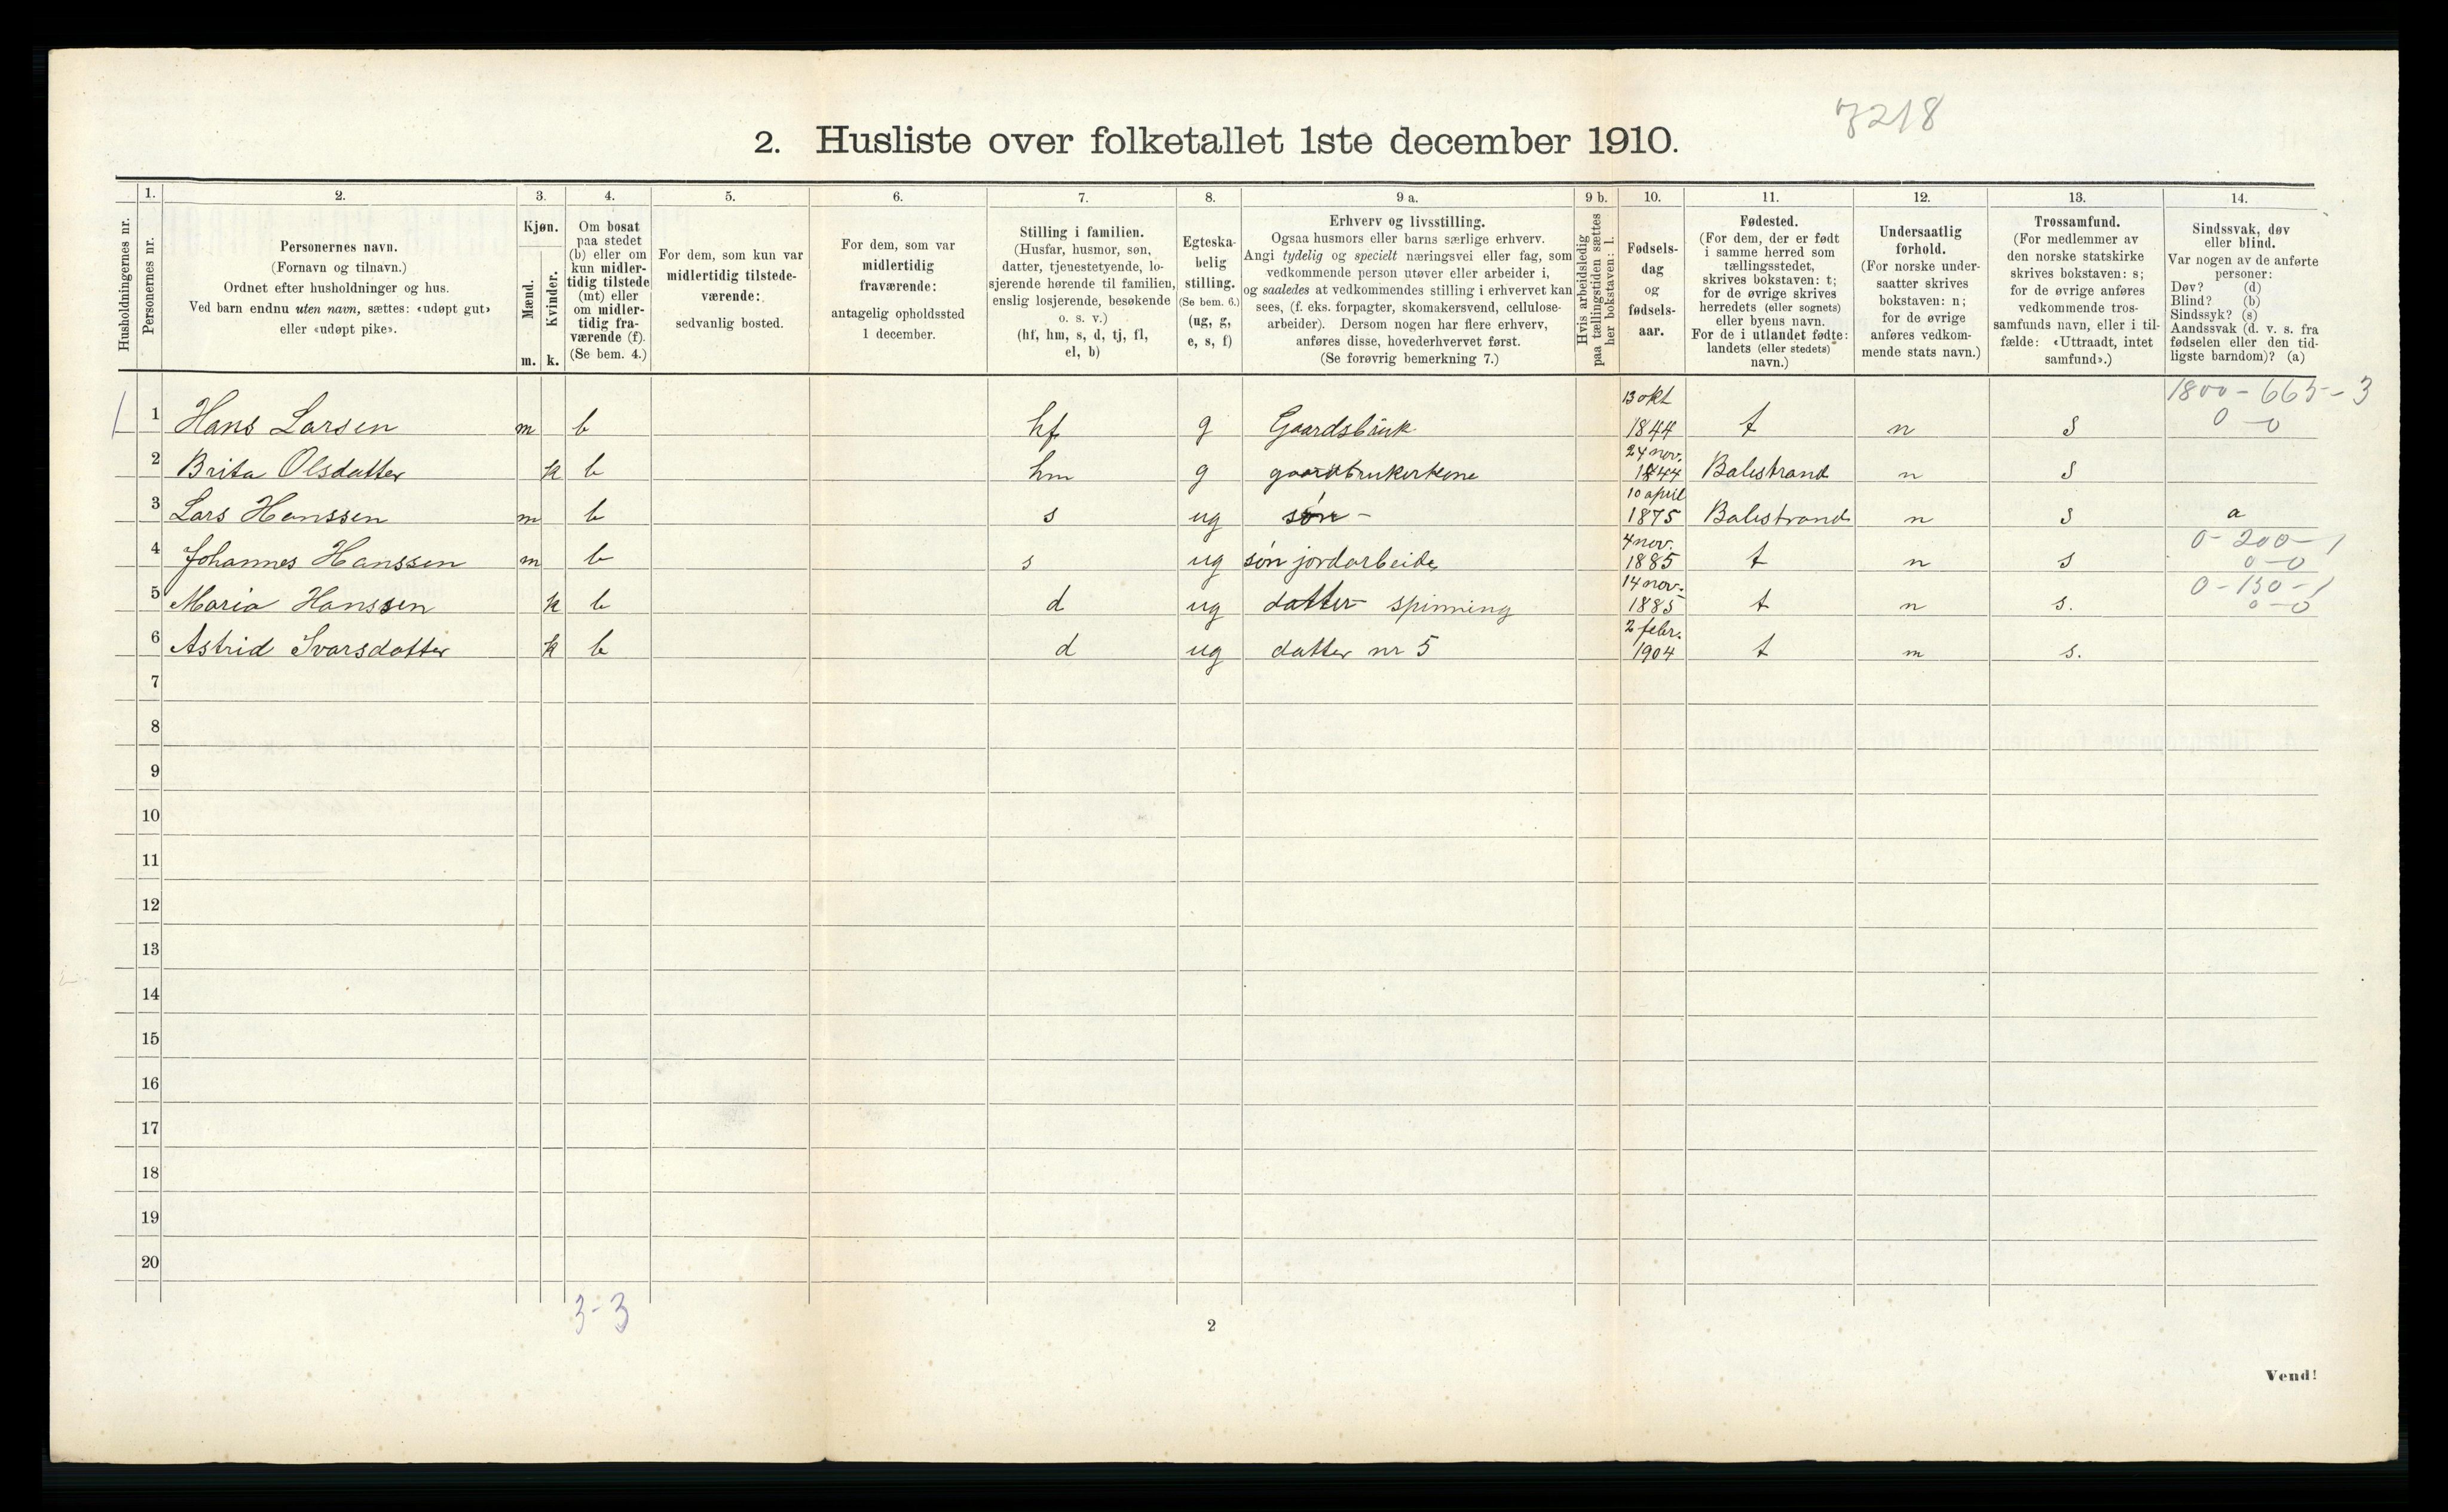 7218
2. Husliste over folketallet 1ste december 1910.
Husholdningernes nr.
1.
Personernes nr.
2.
Personernes navn.
(Fornavn og tilnavn.)
Ordnet efter husholdninger og hus.
Ved barn endnu uten navn, sættes: «udøpt gut»
eller «udøpt pike».
3.
Kjøn.
Mænd.
Kvinder.
m. k.
4.
Om bosat
paa stedet
(b) eller om
kun midler-
tidig tilstede
(mt) eller
om midler-
tidig fra-
værende (f).
(Se bem. 4.)
5.
For dem, som kun var
midlertidig tilstede-
værende:
sedvanlig bosted.
6.
For dem, som var
midlertidig
fraværende:
antagelig opholdssted
1 december.
7.
Stilling i familien.
(Husfar, husmor, søn,
datter, tjenestetyende, lo-
sjerende hørende til familien,
enslig losjerende, besøkende
o. s. v.)
(hf, hm, s, d, tj, fl,
el, b)
8.
Egteska-
belig
stilling.
(Se bem. 6.)
(ug, g,
e, s, f)
9 a.
Erhverv og livsstilling.
Ogsaa husmors eller barns særlige erhverv.
Angi tydelig og specielt næringsvei eller fag, som
vedkommende person utøver eller arbeider i,
og saaledes at vedkommendes stilling i erhvervet kan
sees, (f. eks. forpagter, skomakersvend, cellulose-
arbeider). Dersom nogen har flere erhverv,
anføres disse, hovederhvervet først.
(Se forøvrig bemerkning 7.)
9 b.
Hvis arbeidsledig
paa tællingstiden sættes
her bokstaven: l.
10.
Fødsels-
dag
og
fødsels-
aar.
11.
Fødested.
(For dem, der er født
i samme herred som
tællingsstedet,
skrives bokstaven: t;
for de øvrige skrives
herredets (eller sognets)
eller byens navn.
For de i utlandet fødte:
landets (eller stedets)
navn.)
12.
Undersaatlig
forhold.
(For norske under-
saatter skrives
bokstaven: n;
for de øvrige
anføres vedkom-
mende stats navn.)
13.
Trossamfund.
(For medlemmer av
den norske statskirke
skrives bokstaven: s;
for de øvrige anføres
vedkommende tros-
samfunds navn, eller i til-
fælde: «Uttraadt, intet
samfund».)
14.
Sindssvak, døv
eller blind.
Var nogen av de anførte
personer:
Døv? (d)
Blind? (b)
Sindssyk? (s)
Aandssvak (d. v. s. fra
fødselen eller den tid-
ligste barndom)? (a)
1800 - 665 - 3
13 okt
1 1 Hans Larsen m b hf g Gaardsbruk 1844 t n s 0 - 0
24 nov.
2 Brita Olsdatter k b hm g gaardbrukerkone 1844 Balestrand n s
10 april
3 Lars Hanssen m b s ug søn - 1875 Balestrand n s a
4 nov. 0 - 200 - 1
4 Johannes Hanssen m b s ug søn jordarbeide 1885 t n s 0 - 0
14 nov. 0 - 130 - 1
5 Maria Hanssen k b d ug datter spinning 1885 t n s. 0 - 0
2 febr.
6 Astrid Ivarsdatter k b d ug datter nr 5 1904 t n s.
7
8
9
10
11
12
13
14
15
16
17
18
19
20
3 - 3
2
Vend!